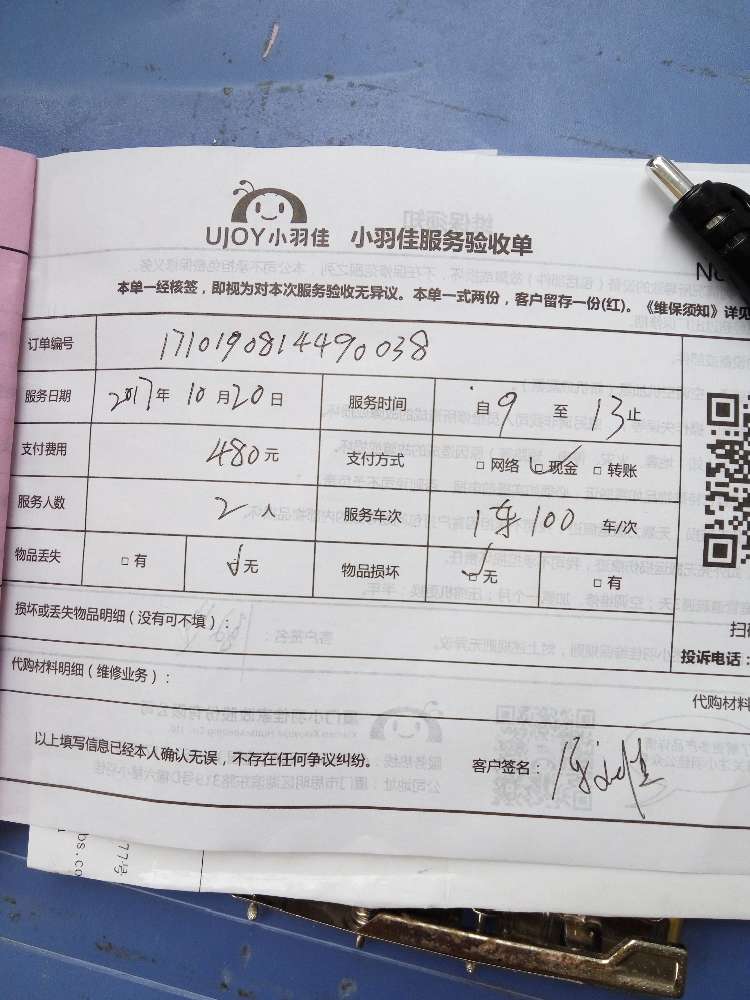 UJOY小羽佳 小羽佳服务验收单
本单一经核签，即视为对本次服务验收无异议。本单一式两份，客户留存一份(红)。《维保须知》详见
订单编号 1710190814490038
服务日期 2017年10月20日 服务时间 自9至13止
支付费用 480元 支付方式 □网络 ☑现金 □转账
服务人数 2人 服务车次 1车100 车/次
物品丢失 □有 ☑无 物品损坏 ☑无 □有
损坏或丢失物品明细（没有可不填）：
投诉电话：
代购材料明细（维修业务）：
代购材料
以上填写信息已经本人确认无误，不存在任何争议纠纷。 客户签名：